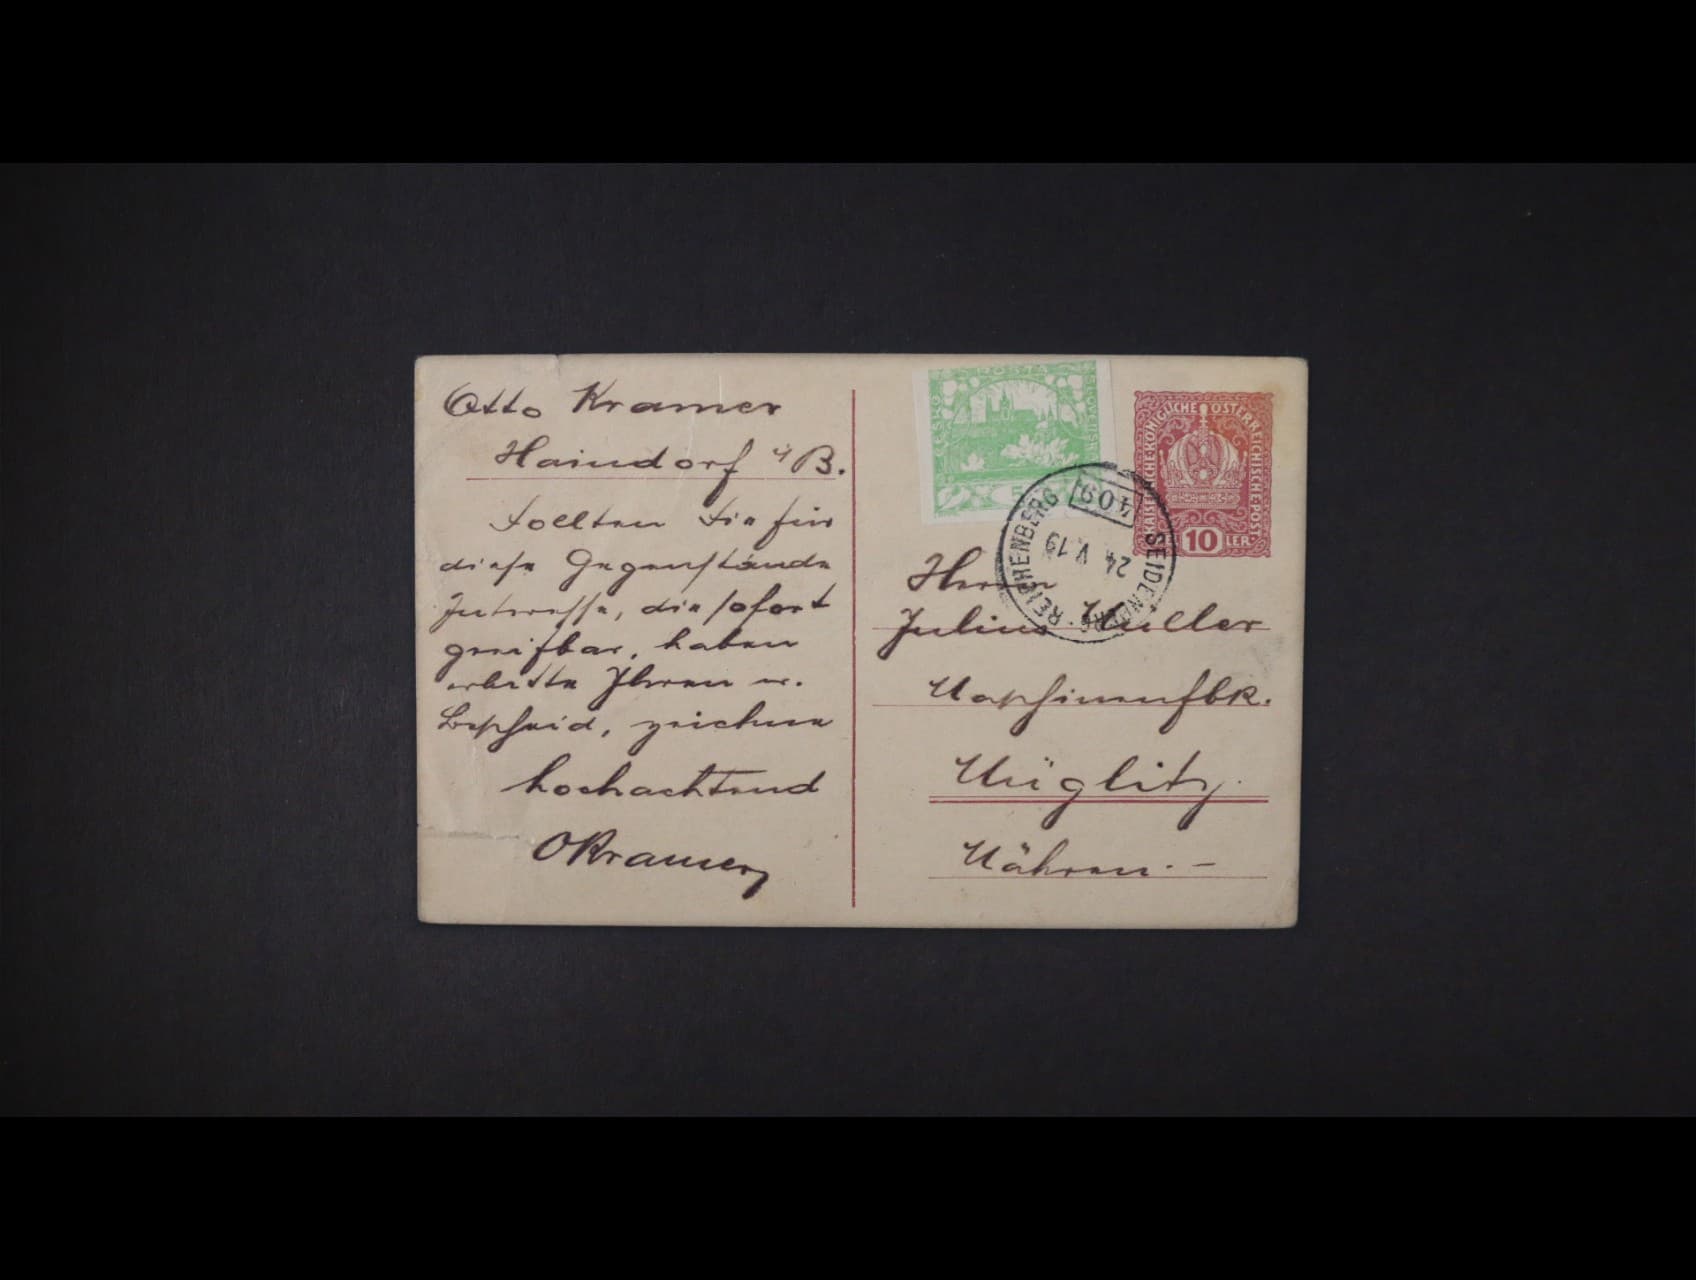 Otto Kramer
Haindorf i/B.
Sollten Sie für
diese Gegenstände
Interesse, die sofort
greifbar, haben
erbitte Ihren w.
Bescheid, zeichne
hochachtend
OKramer
ČESKO POŠTA SLOVENSKÁ
5
KAISERLICHE KÖNIGLICHE ÖSTERREICHISCHE POST
10
SEIDENBERG · REICHENBERG
409
24. V. 19
Herrn
Julius Müller
Maschinenfbk.
Müglitz.
Mähren. –